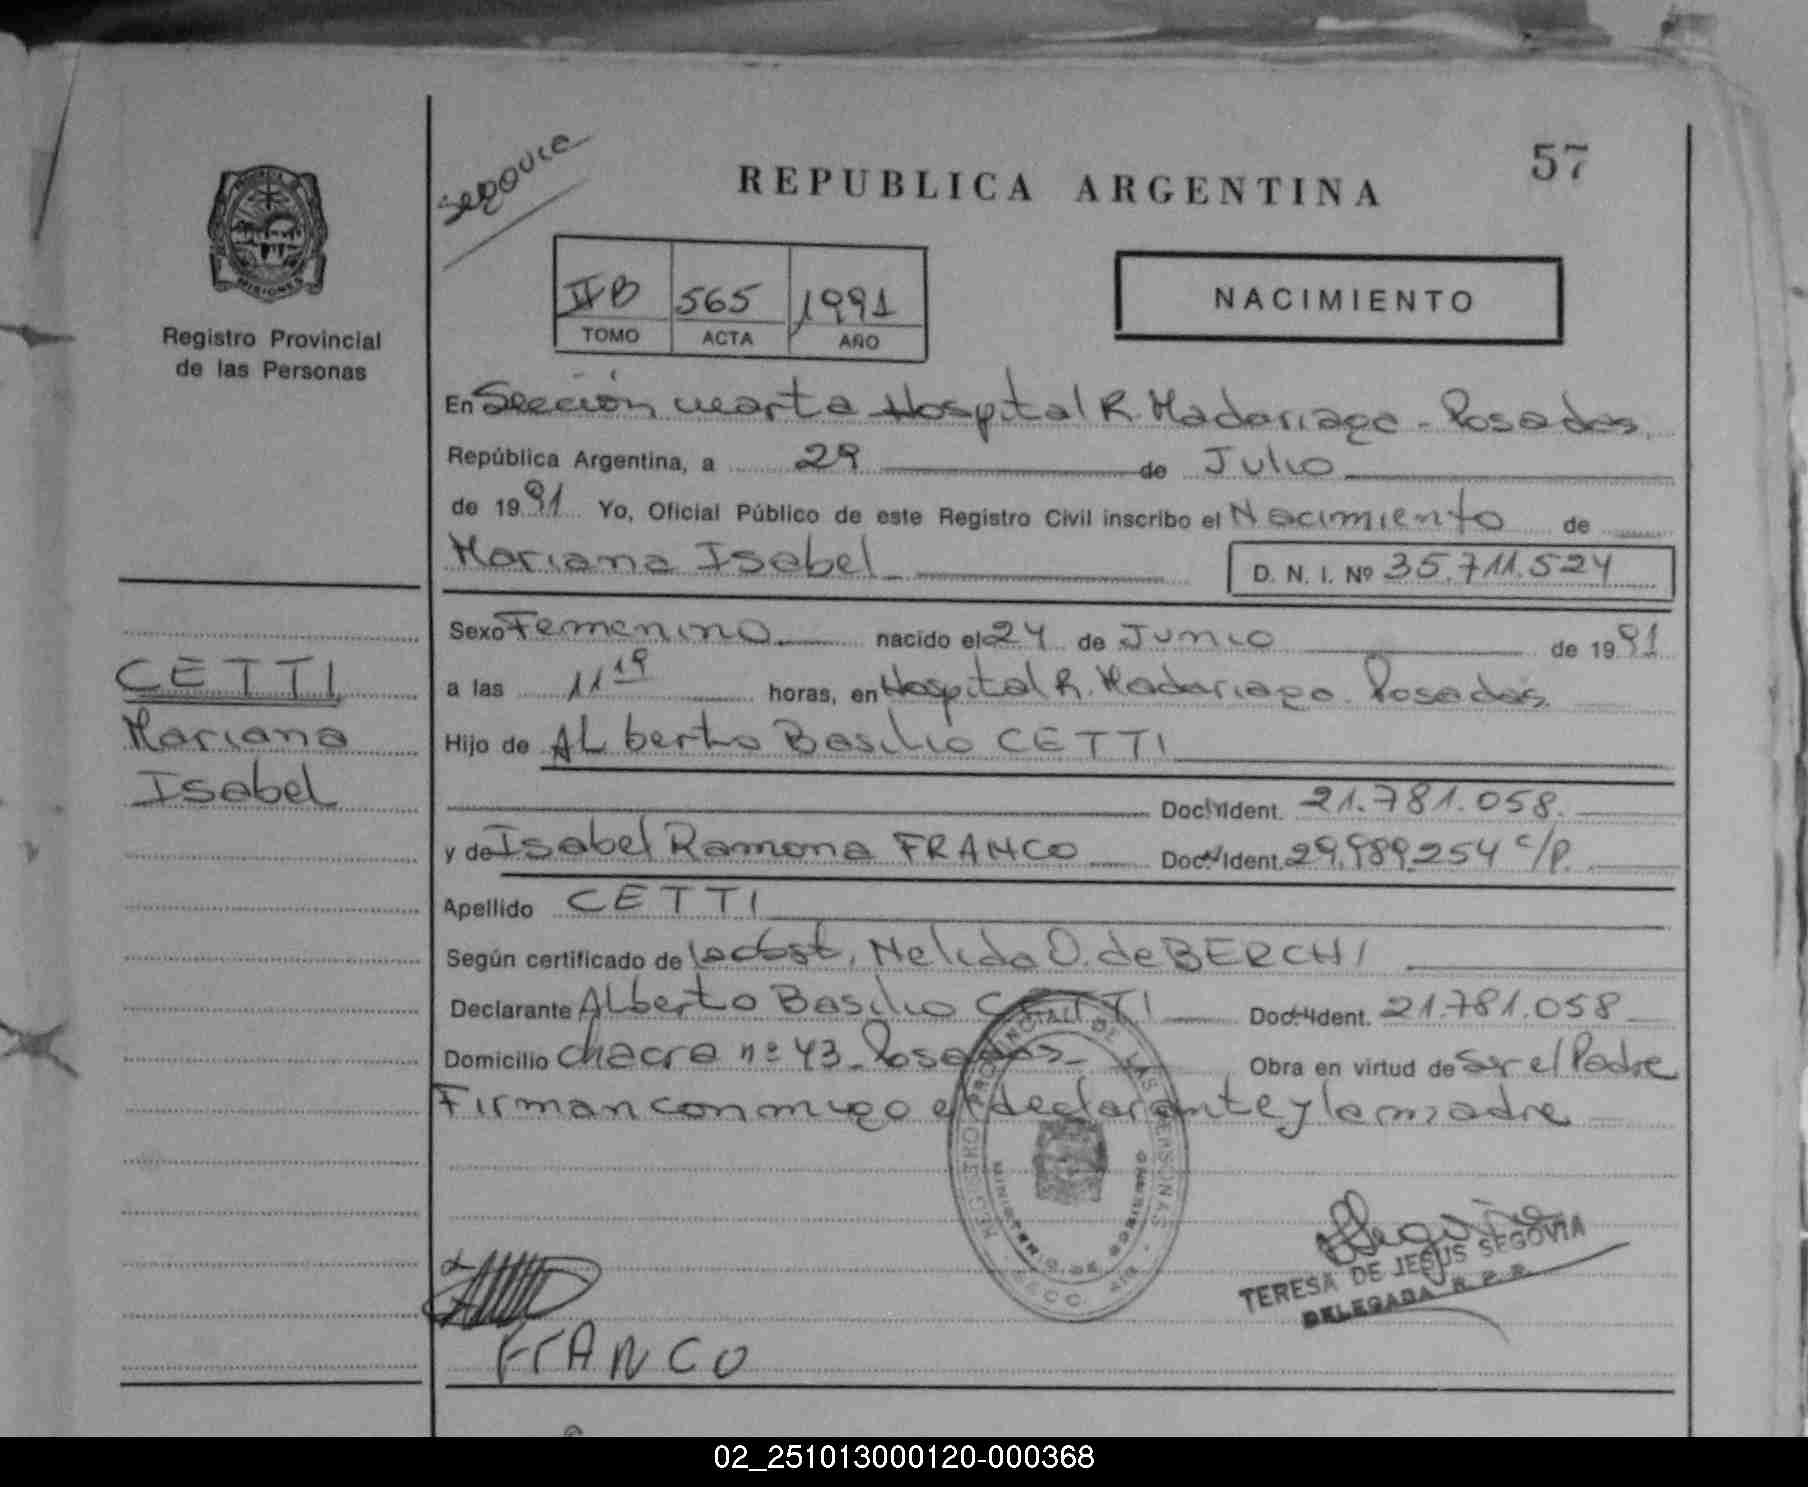 Segovia
REPUBLICA ARGENTINA
57
MISIONES
Registro Provincial
de las Personas
II B 565 1991
TOMO ACTA AÑO
NACIMIENTO
En Sección cuarta Hospital R. Madariaga - Posadas.
República Argentina, a 29 de Julio
de 1991 Yo, Oficial Público de este Registro Civil inscribo el Nacimiento de
Mariana Isabel D. N. I. Nº 35.711.524
Sexo Femenino nacido el 24 de Junio de 1991
a las 11 19 horas, en Hospital R. Madariaga. Posadas.
CETTI
Mariana
Isabel
Hijo de Alberto Basilio CETTI
Doc. Ident. 21.781.058.
y de Isabel Ramona FRANCO Doc. Ident. 29.989.254 c/p.
Apellido CETTI
Según certificado de la obst. Nelida O. de BERCHI
Declarante Alberto Basilio CETTI Doc. Ident. 21.781.058
Domicilio chacra nº 43 - Posadas - Obra en virtud de Ser el Padre
Firman conmigo el declarante y la madre
REGISTRO PROVINCIAL DE LAS PERSONAS
MINISTERIO DE GOBIERNO
SECC. 4ta
TERESA DE JESUS SEGOVIA
DELEGADA R. P. P.
FRANCO
02_251013000120-000368